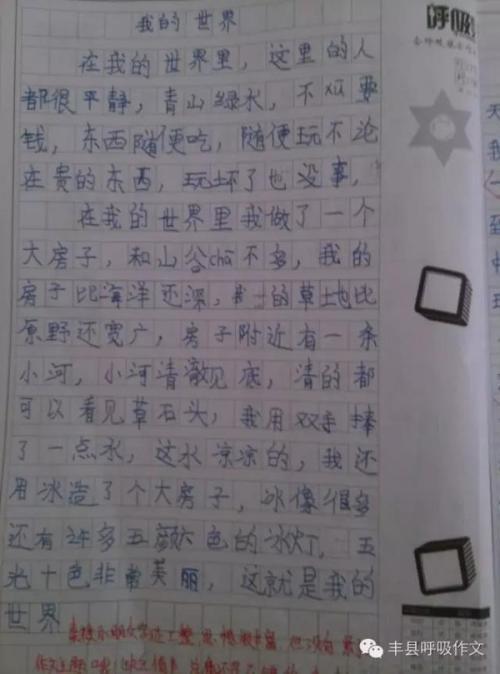 我的世界
在我的世界里，这里的人
都很平静，青山绿水，不xū要
钱，东西随便吃，随便玩不论
在贵的东西，玩坏了也没事，
在我的世界里我做了一个
大房子，和山谷chā不多，我的
房子比海洋还深，的草地比
原野还宽广，房子附近有一条
小河，小河清澈见底，清的都
可以看见草石头，我用双手捧
了一点水，这水凉凉的，我还
用冰造了个大房子，冰像很多
还有许多五颜六色的冰灯，五
光十色非常美丽，这就是我的
世界
呼吸
丰县呼吸作文